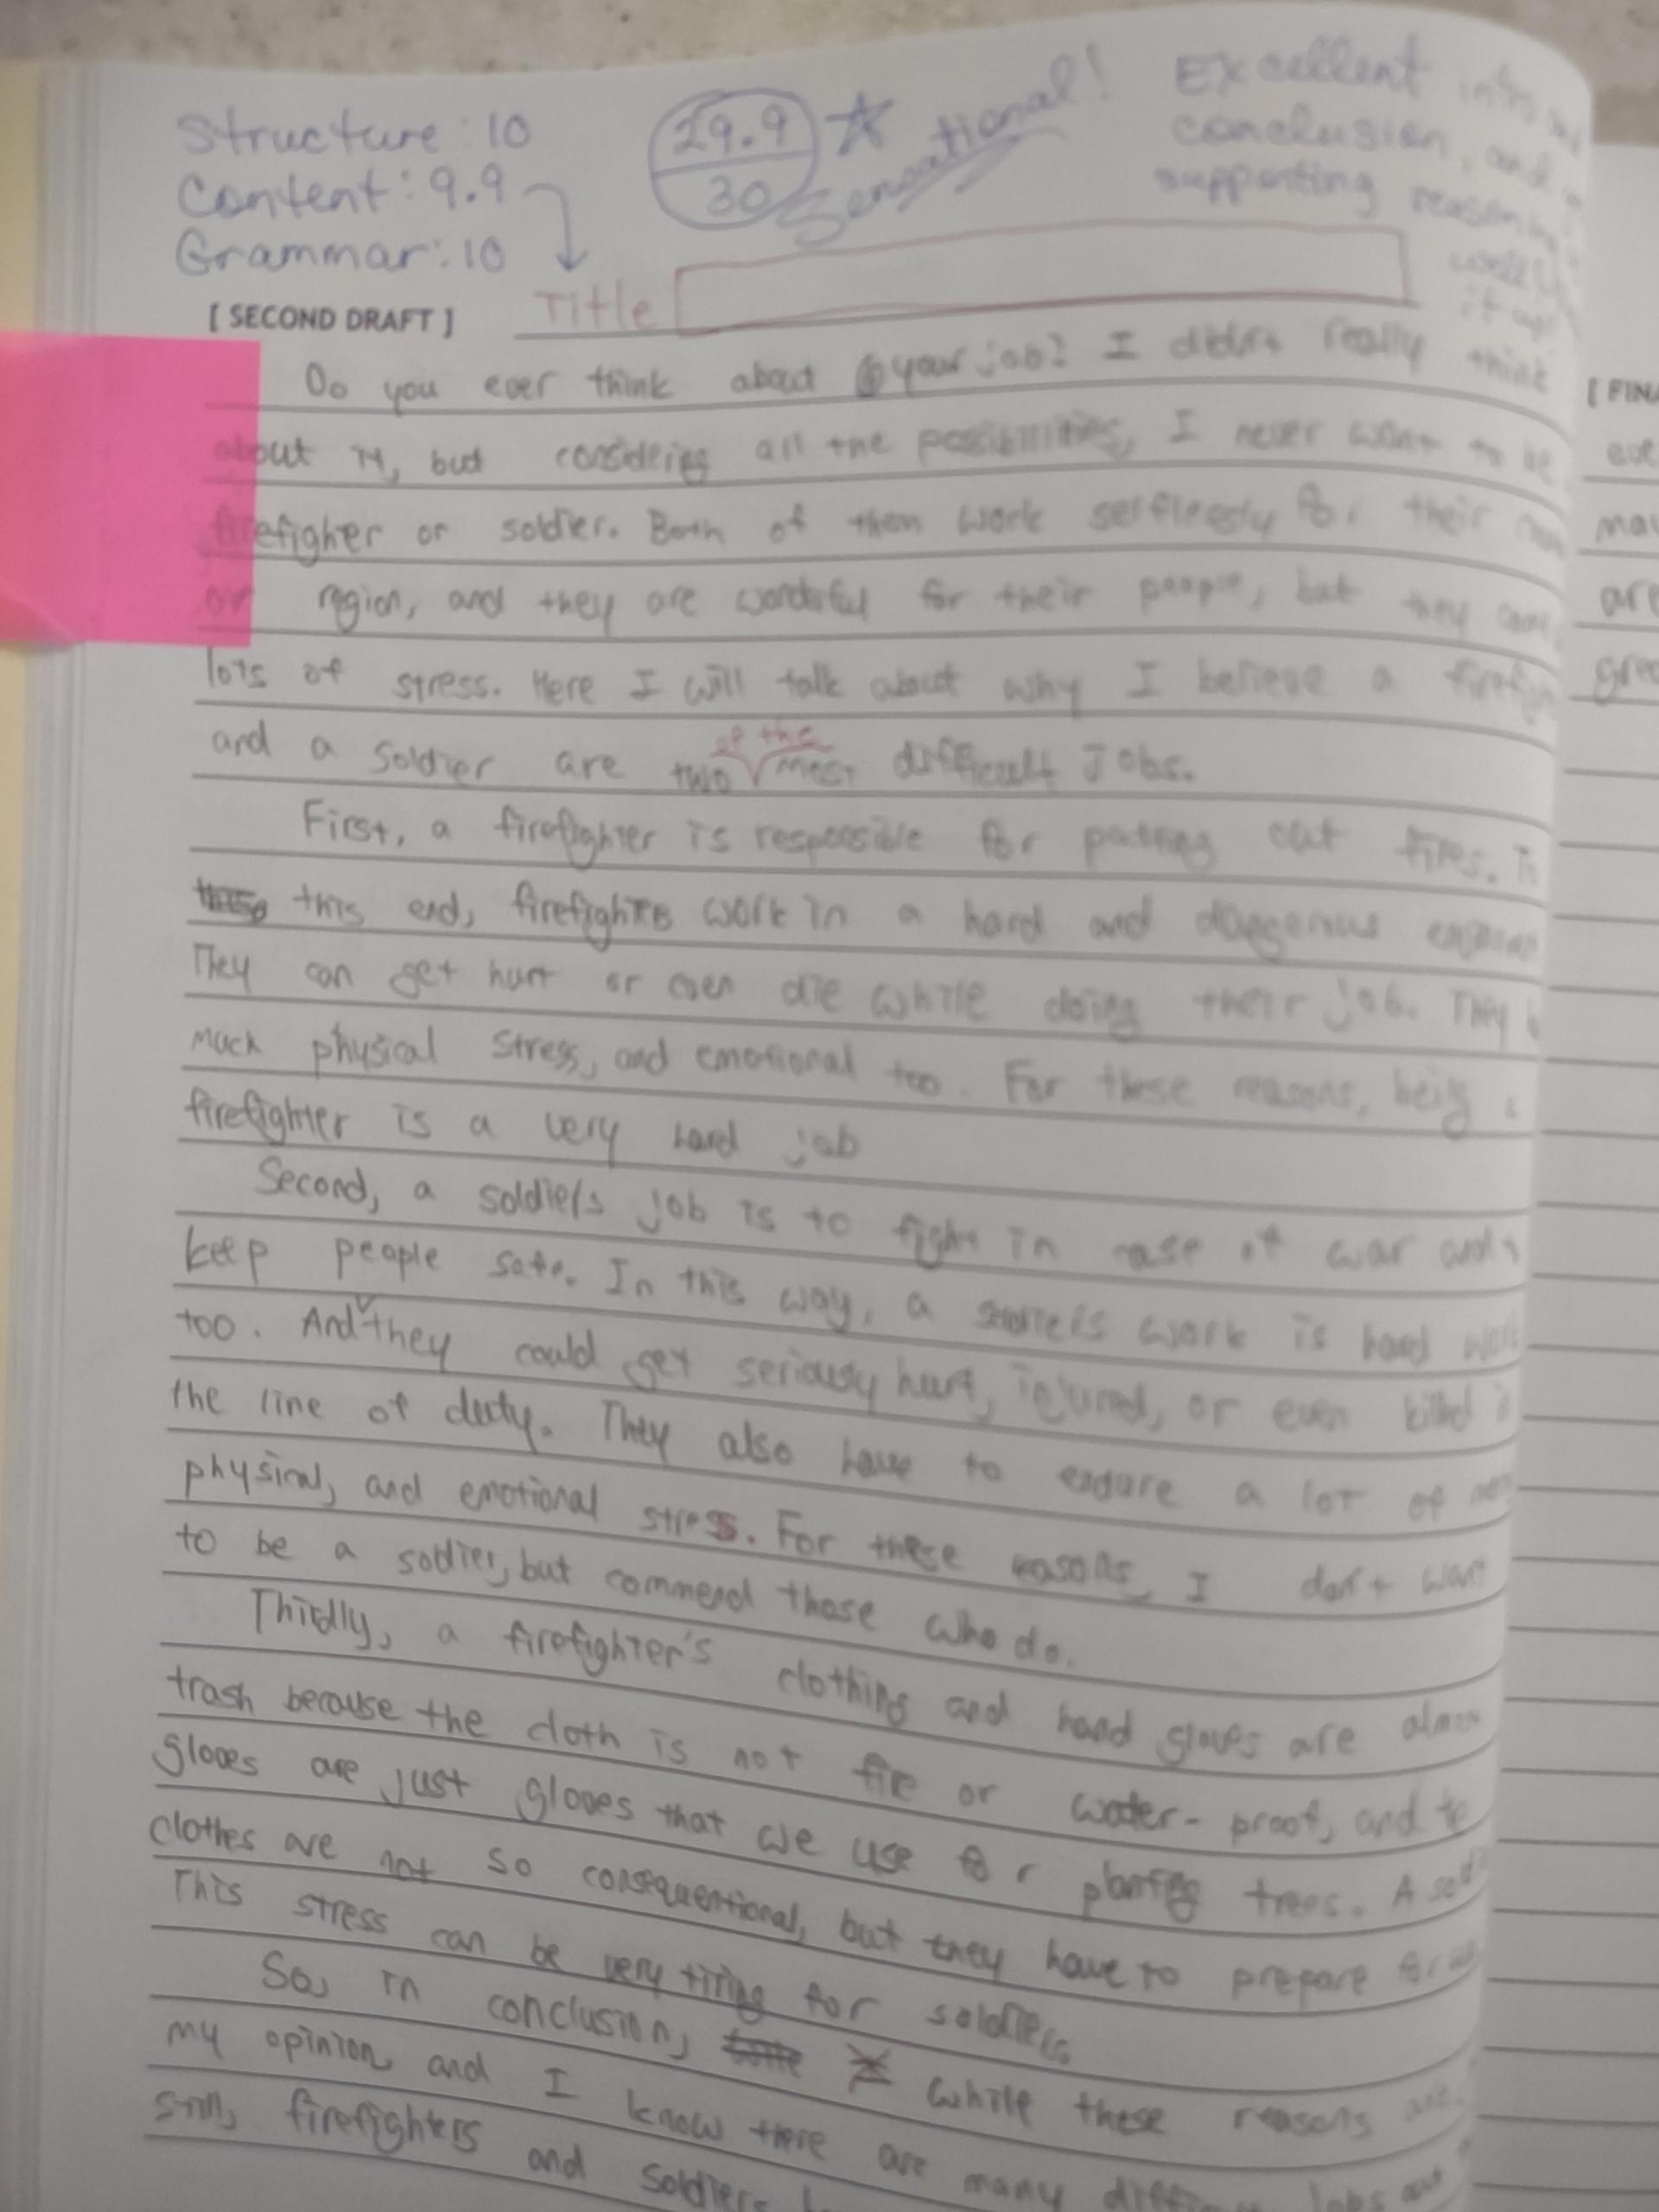 Structure: 10
Content: 9.9
Grammar: 10
29.9
30
Sensational!
Excellent intro and
conclusion, and
supporting reasoning
well
it up!
[ SECOND DRAFT ]
Title
Do you ever think about your job? I didn't really think
about it, but considering all the possibilities, I never want to be
firefigher or soldier. Both of them work selflessly for their
or region, and they are wonderful for their people, but they
lots of stress. Here I will talk about why I believe a
and a soldier are two of the most difficult jobs.
First, a firefighter is responsible for putting out fires.
this end, firefighters work in a hard and dangerous
They can get hurt or even die while doing their job. They
much physical stress, and emotional too. For these reasons, being a
firefighter is a very hard job
Second, a soldier's job is to fight in case of war and
keep people safe. In this way, a work is hard
too. And they could get seriously hurt, injured, or even killed
the line of duty. They also have to endure a lot of
physical, and emotional stress. For these reasons, I don't want
to be a soldier, but commend those who do.
Thirdly, a firefighter's clothing and hand gloves are
trash because the cloth is not fire or water-proof, and
gloves are just gloves that we use for planting trees. A
clothes are not so consequentional, but they have to prepare for
This stress can be very tiring for soldiers
So, in conclusion, while these reasons are
my opinion, and I know there are many
still, firefighters and soldiers
[ FIN
eve
may
are
gre